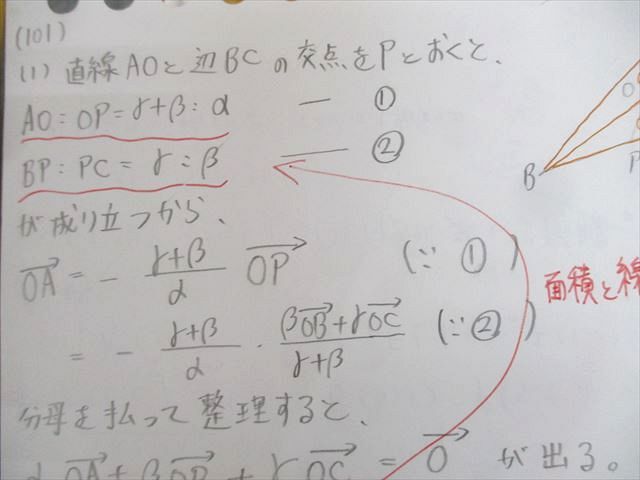 (101)
(1) 直線AOと辺BCの交点をPとおくと、
AO:OP=γ+β:α ― ①
BP:PC=γ:β ― ②
が成り立つから、
\overrightarrow{OA} = - \frac{γ+β}{α} \overrightarrow{OP} (∵ ①)
= - \frac{γ+β}{α} · \frac{β\overrightarrow{OB}+γ\overrightarrow{OC}}{γ+β} (∵ ②)
分母を払って整理すると、
α\overrightarrow{OA} + β\overrightarrow{OB} + γ\overrightarrow{OC} = \overrightarrow{0} が出る。
O
B
P
面積と線